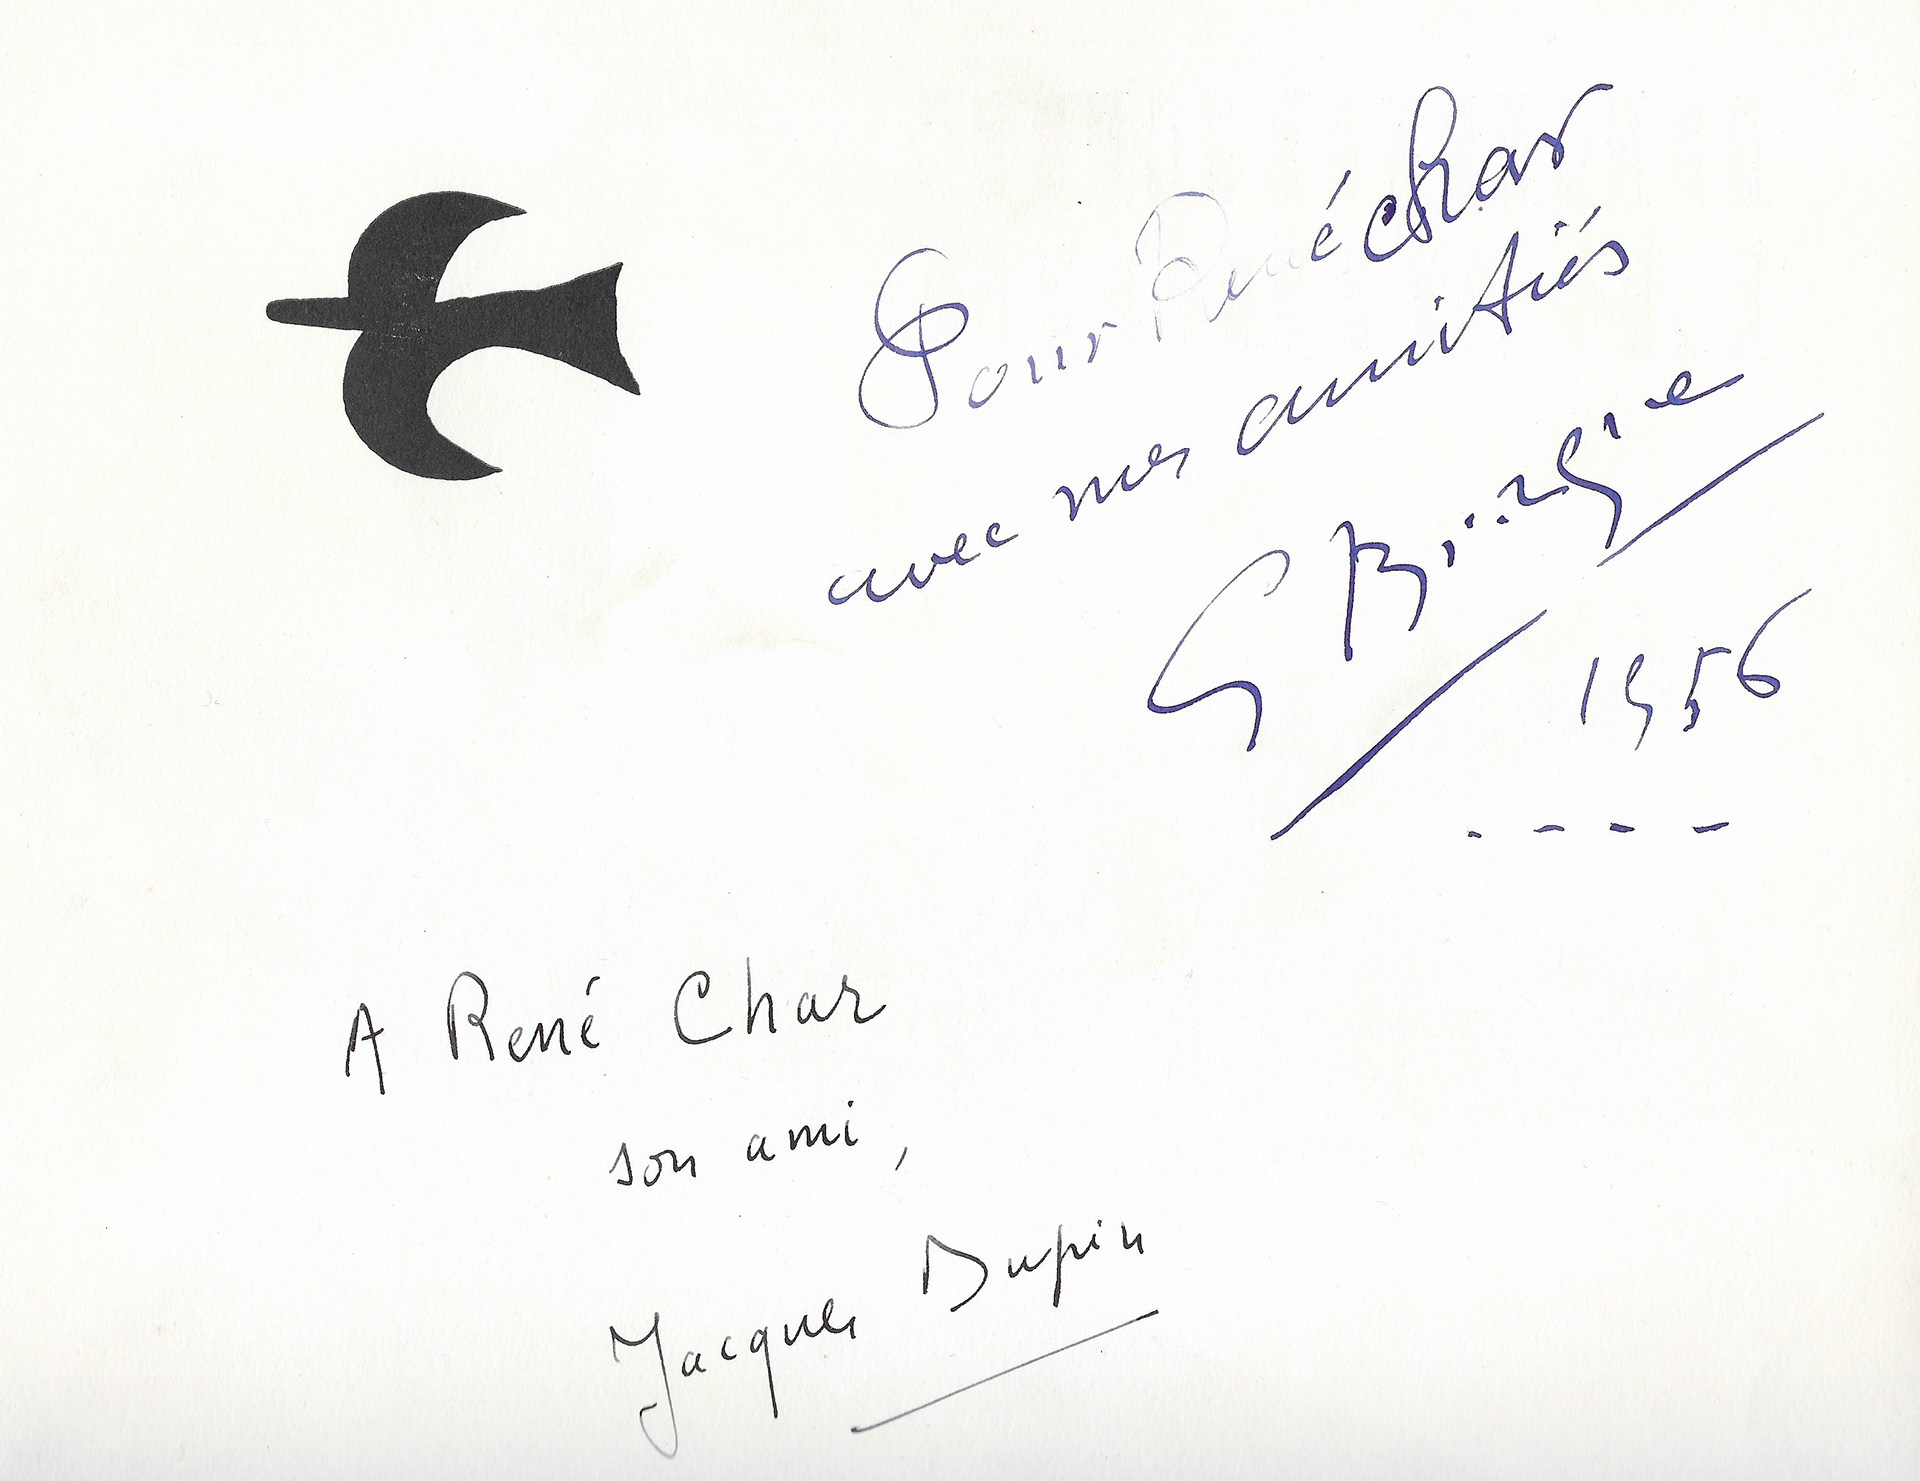 Pour René Char
avec mes amitiés
G Braque
1956
A René Char
son ami,
Jacques Dupin